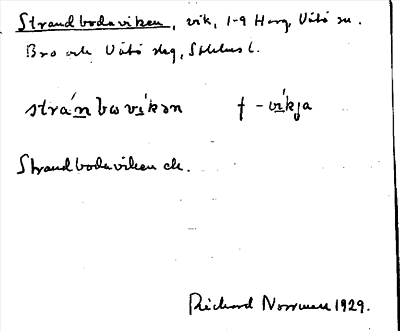 Strandbodaviken, vik, 1-9 Harg, Vätö sn.
Bro och Vätö slg, Sthlms l.
strán bωvi̱kən f - vi̱kja
Strandbodaviken ek.
Richard 1929.